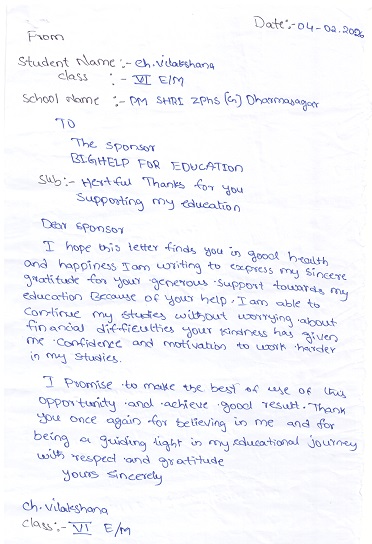 Date:-04-02.2026
From
Student Name :- ch.vilakshana
class :- VI E/M
School Name :- PM SHRI ZPHS (G) Dharmasagar
TO
The sponsor
BIGHELP FOR EDUCATION
Sub:- Hertful Thanks for you
Supporting my education
Dear sponsor
I hope this letter finds you in good health
and happiness I am writing to express my sincere
gratitude for your generous support towards my
education Because of your help, I am able to
Continue my studies without worrying about
financial difficulties your kindness has given
me Confidence and motivation to work harder
in my studies.
I Promise to make the best of use of this
opportunity and achieve good result. Thank
you once again for believing in me and for
being a guiding light in my educational journey
with respect and gratitude
yours sincerely
ch.vilakshana
class:- VI E/M